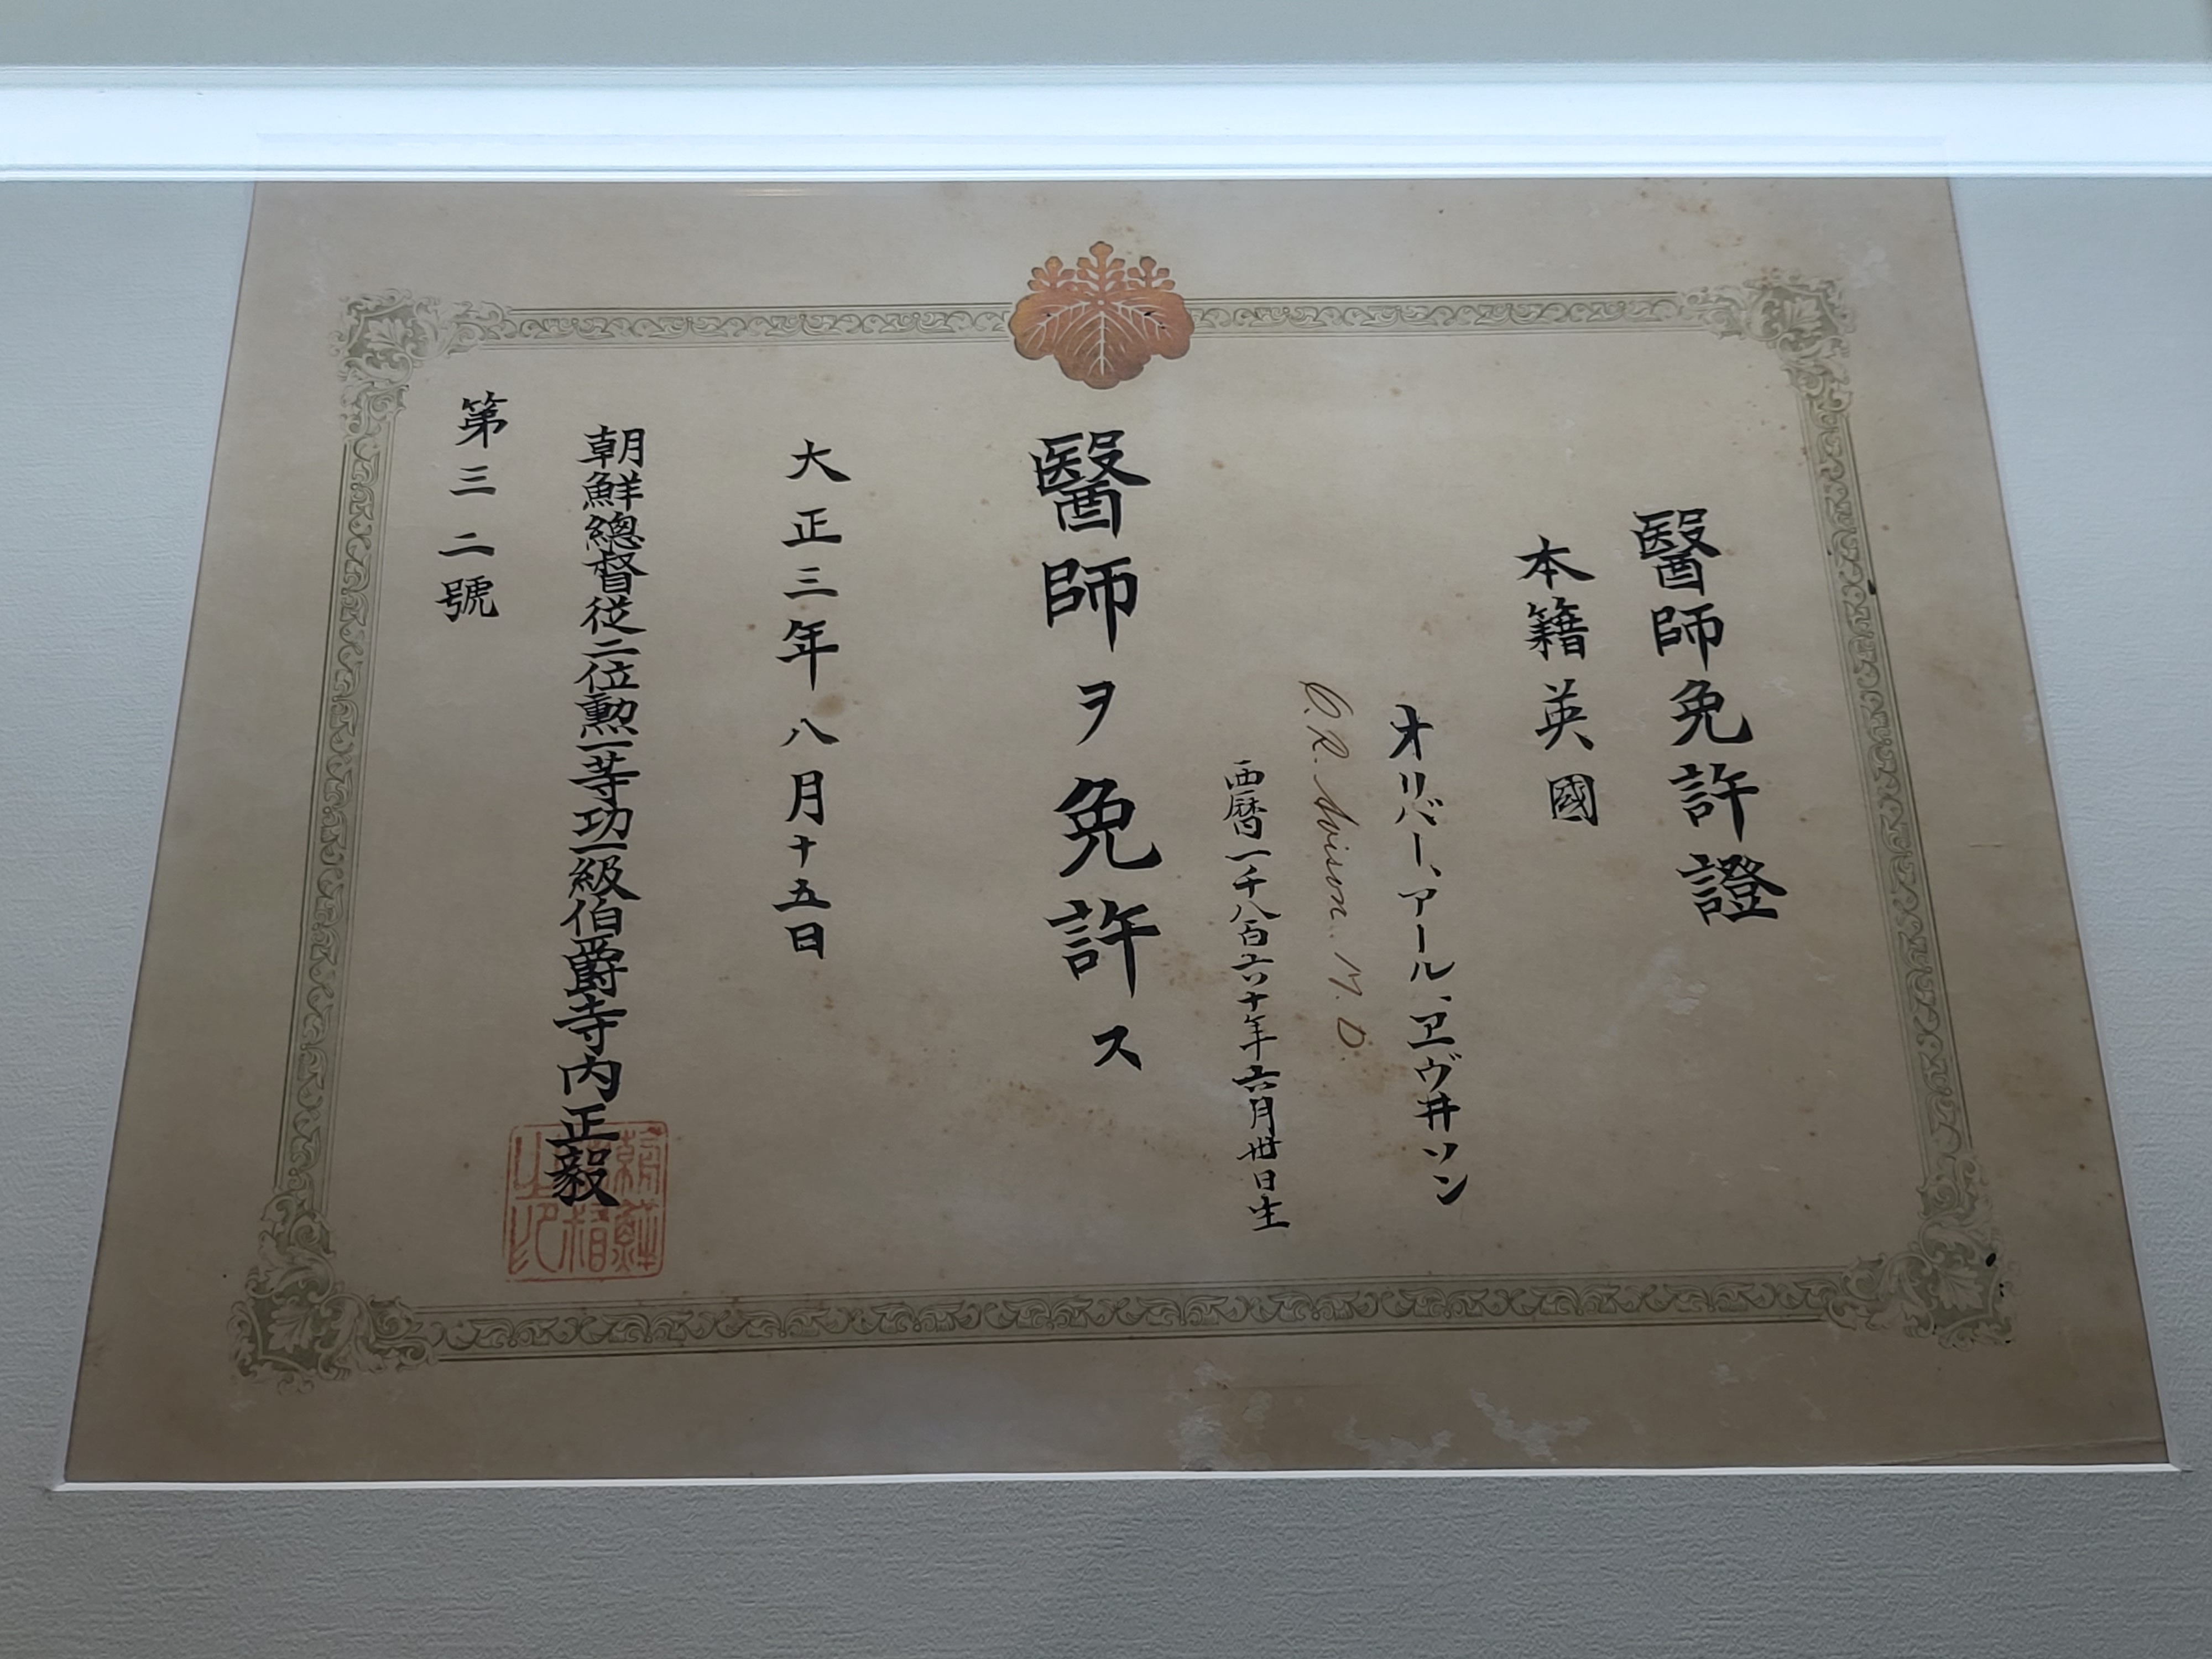 醫師免許證
本籍英國
オリバー、アール、ヱヴ井ソン
O. R. Avison. M. D.
西暦一千八百六十年六月卅日生
醫師ヲ免許ス
大正三年八月十五日
朝鮮總督従二位勲一等功一級伯爵寺内正毅
第三二號